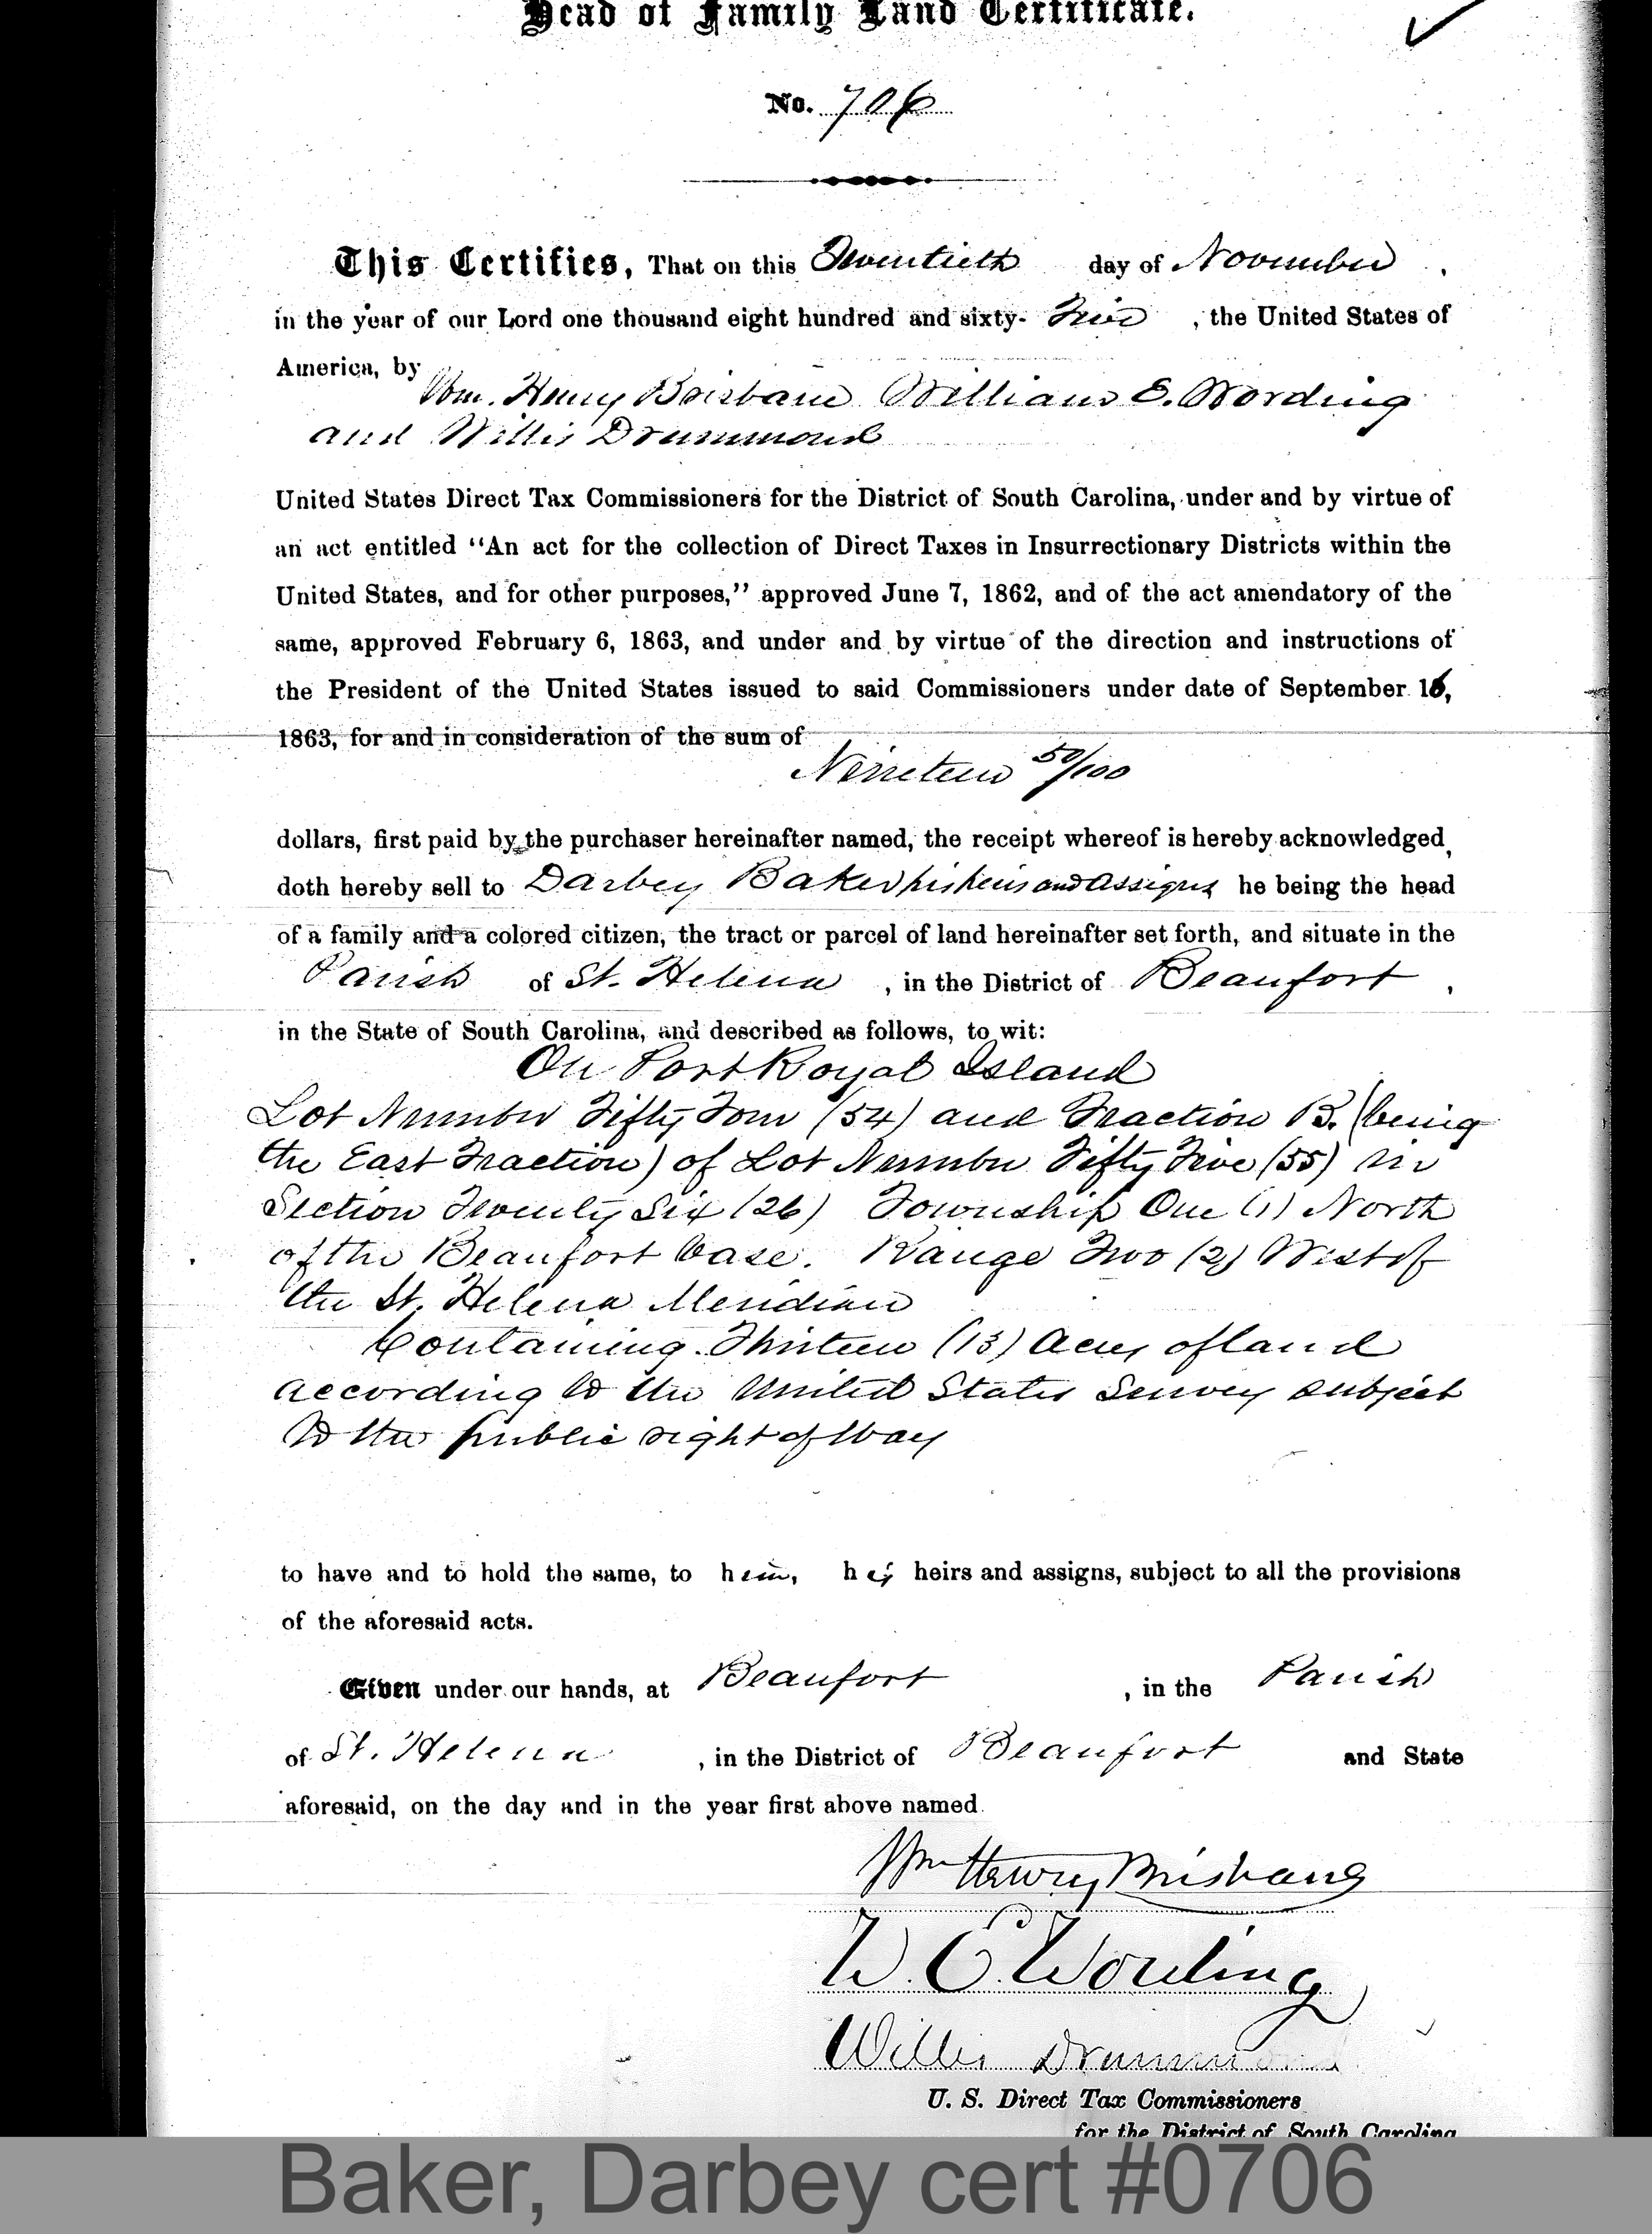 Head of Family Land Certificate.
No. 706
This Certifies, That on this Twentieth day of November,
in the year of our Lord one thousand eight hundred and sixty- Five, the United States of
America, by
Wm. Henry Brisbane William E. Wording
and Willis Drummond
United States Direct Tax Commissioners for the District of South Carolina, under and by virtue of
an act entitled "An act for the collection of Direct Taxes in Insurrectionary Districts within the
United States, and for other purposes," approved June 7, 1862, and of the act amendatory of the
same, approved February 6, 1863, and under and by virtue of the direction and instructions of
the President of the United States issued to said Commissioners under date of September 16,
1863, for and in consideration of the sum of
Nineteen 50/100
dollars, first paid by the purchaser hereinafter named, the receipt whereof is hereby acknowledged,
doth hereby sell to Darbey Baker his heirs and assigns he being the head
of a family and a colored citizen, the tract or parcel of land hereinafter set forth, and situate in the
Parish of St. Helena, in the District of Beaufort,
in the State of South Carolina, and described as follows, to wit:
On Port Royal Island
Lot Number Fifty Four (54) and Fraction B. (being
the East Fraction) of Lot Number Fifty Five (55) in
Section Twenty Six (26) Township One (1) North
of the Beaufort base. Range Two (2) West of
the St. Helena Meridian
Containing Thirteen (13) Acres of land
according to the United States Survey subject
to the public right of Way
to have and to hold the same, to him, his heirs and assigns, subject to all the provisions
of the aforesaid acts.
Given under our hands, at Beaufort, in the Parish
of St. Helena, in the District of Beaufort and State
aforesaid, on the day and in the year first above named
Wm Henry Brisbane
W. E. Wording
Willis Drummond
U. S. Direct Tax Commissioners
for the District of South Carolina
Baker, Darbey cert #0706